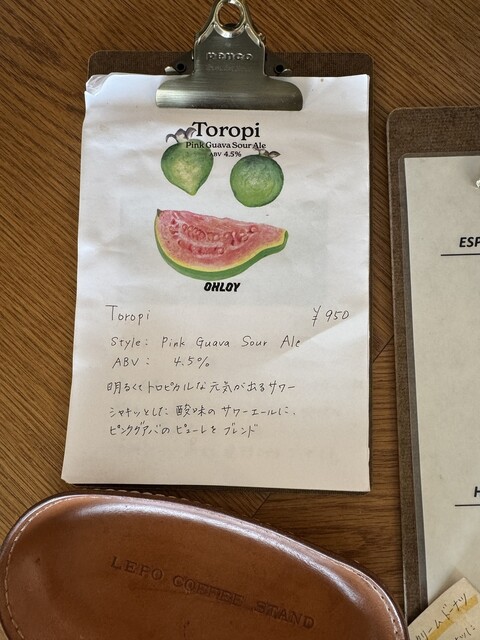 penco
Toropi
Pink Guava Sour Ale
ABV 4.5%
OHLOY
Toropi ¥950
Style: Pink Guava Sour Ale
ABV: 4.5%
明るくてトロピカルな元気が出るサワー
シャキッとした酸味のサワーエールに、
ピンクグァバのピューレをブレンド
LEPO COFFEE STAND
ESP
H
クリームドーナツ